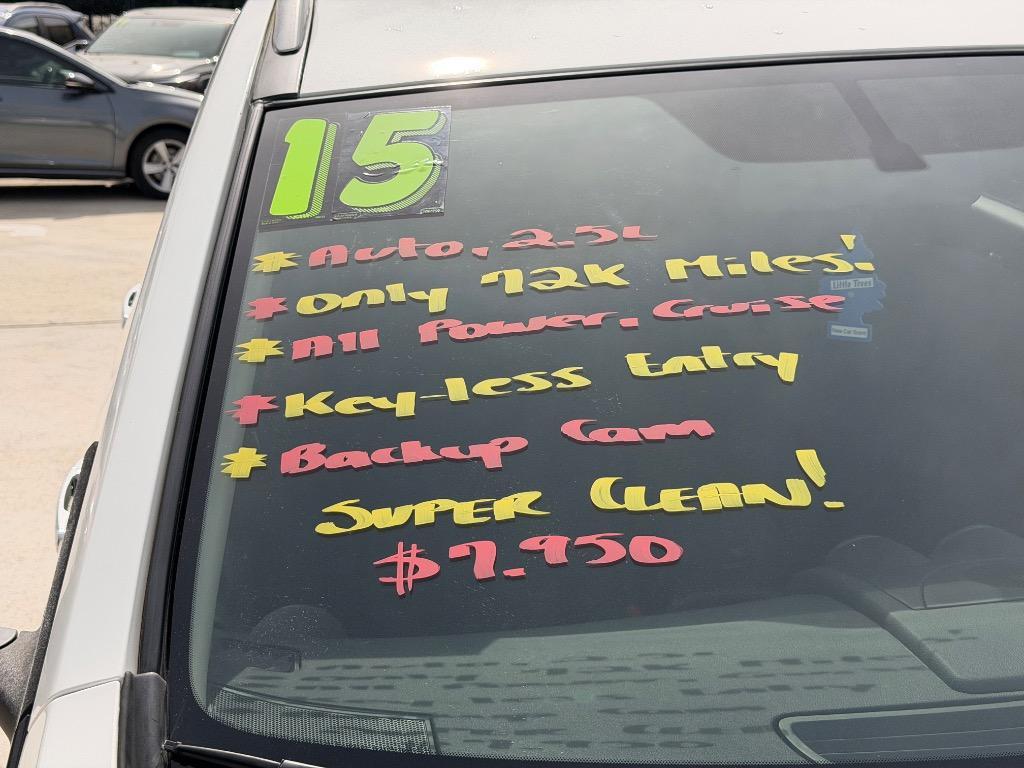 15
* Auto, 2.5L
* Only 72K Miles!
* All Power, Cruise
* Key-less Entry
* Backup Cam
SUPER CLEAN!
$7,950
Little Trees
New Car Scent